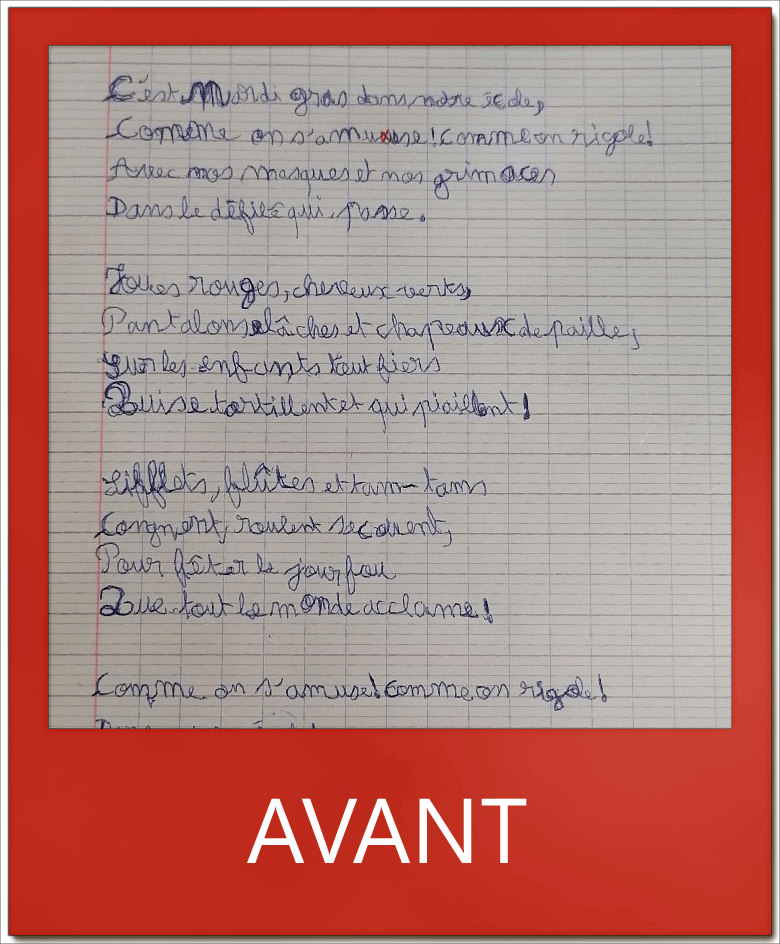 C'est Mardi gras dans notre école,
Comme on s'amuse! Comme on rigole!
Avec nos masques et nos grimaces
Dans le défilé qui passe.
Joues rouges, cheveux verts,
Pantalons lâches et chapeaux de paille,
Sur les enfants tout fiers
Qui se tortillent et qui piaillent!
Sifflets, flûtes et tam-tams
Cognent, roulent secouent,
Pour fêter le jour fou
Que tout le monde acclame!
Comme on s'amuse! Comme on rigole!
AVANT